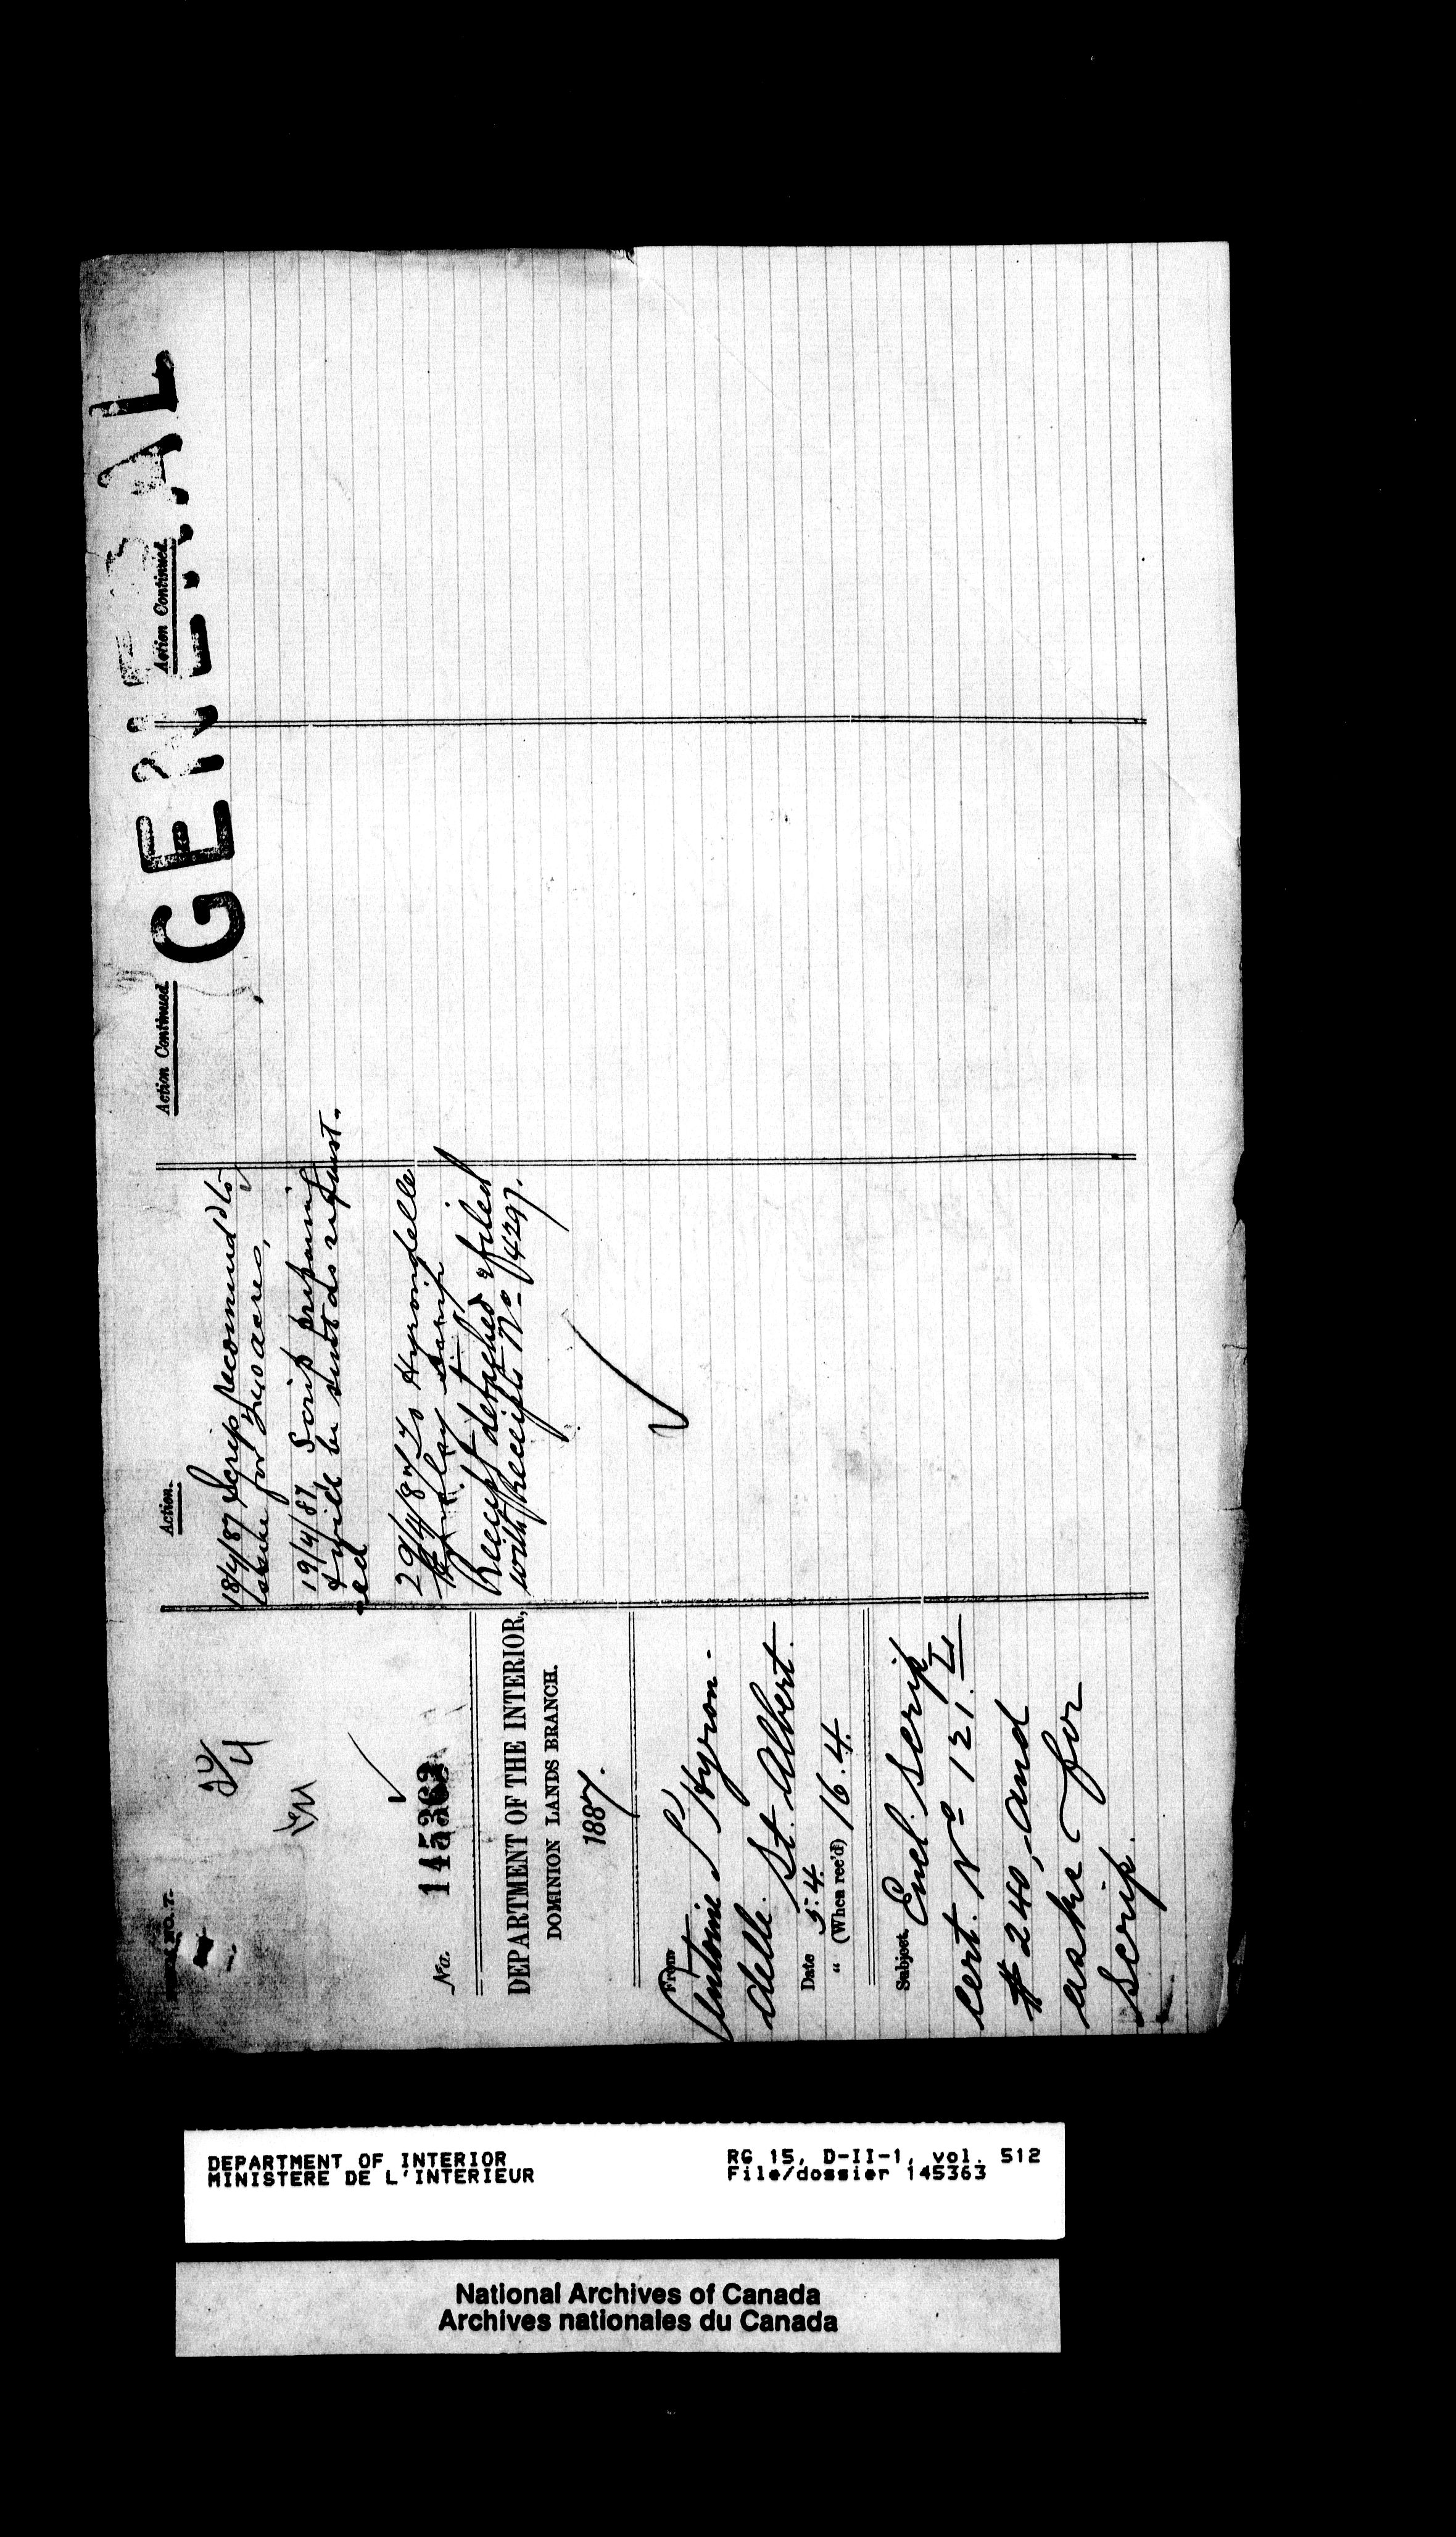 GENERAL
FORM NO. 7.
24/4
No. 145363
DEPARTMENT OF THE INTERIOR,
DOMINION LANDS BRANCH.
1887.
From
Antoine L'Hyron-
delle. St. Albert.
Date 5.4.
" (When rec'd) 16.4.
Subject. Encl. scrip
cert. No 121. L
# 240, and
asks for
scrip.
Action.
18/4/87 Scrip recommend to
issue for 240 acres,
19/4/87. Scrip preparing
& will be sent as request-
ed
29/4/87 To Hyrondelle
scrip
Receipt detached & filed
with receipts No 14297.
Action Continued.
Action Continued.
DEPARTMENT OF INTERIOR
MINISTERE DE L'INTERIEUR
RG 15, D-II-1, vol. 512
File/dossier 145363
National Archives of Canada
Archives nationales du Canada